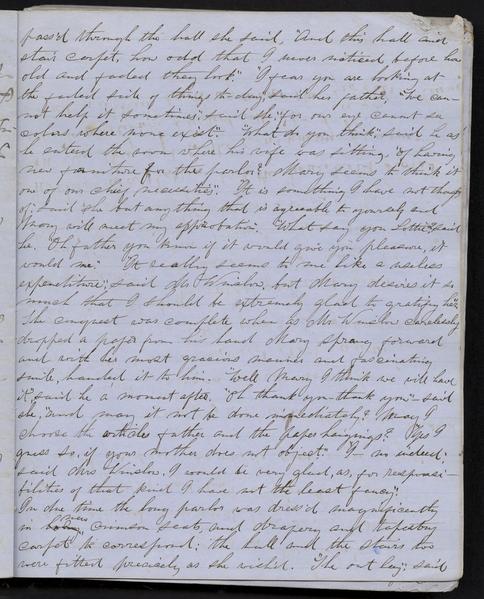 pass'd through the hall she said, "And this hall and
stair carpet, how odd that I never noticed, before how
old and faded they look." "I fear you are looking at
the faded side of things to-day," said her father, "We can-
not help it sometimes," said she, "for our eye cannot see
colors where none exist." "What do you think," said he as
he enterd the room where his wife was sitting, "of having
new furniture for the parlor? Mary seems to think it
one of our chief necessities." "It is something I have not thought
of," said she "but any thing that is agreeable to yourself and
Mary will meet my approbation." "What say you Lottie" said
he. "Oh father you know if it would give you pleasure, it
would me." "It really seems to me like a useless
expenditure," said Mr Winslow, but Mary desires it so
much that I should be extremely glad to gratify her."
The conquest was complete when as Mr Winslow carelessly
dropped a paper from his hand Mary sprang forward
and with her most gracious manner and fascinating
smile, handed it to him. "Well Mary I think we will have
it," said he a moment after. "Oh thank you thank you" said
she, "and may it not be done immediately? May I
choose the articles father and the paper hangings?" "Yes I
guess so, if your mother does not object" "I – no indeed,"
said Mrs Winslow. I would be very glad, as, for responsi-
bilities of that kind I have not the least fancy."
In due time the long parlor was dress'd magnificently
in crimson seats, and drapery and tapestry
carpet to correspond; the hall and the stairs too
were fitted precisely as she wish'd. "The out lay," said